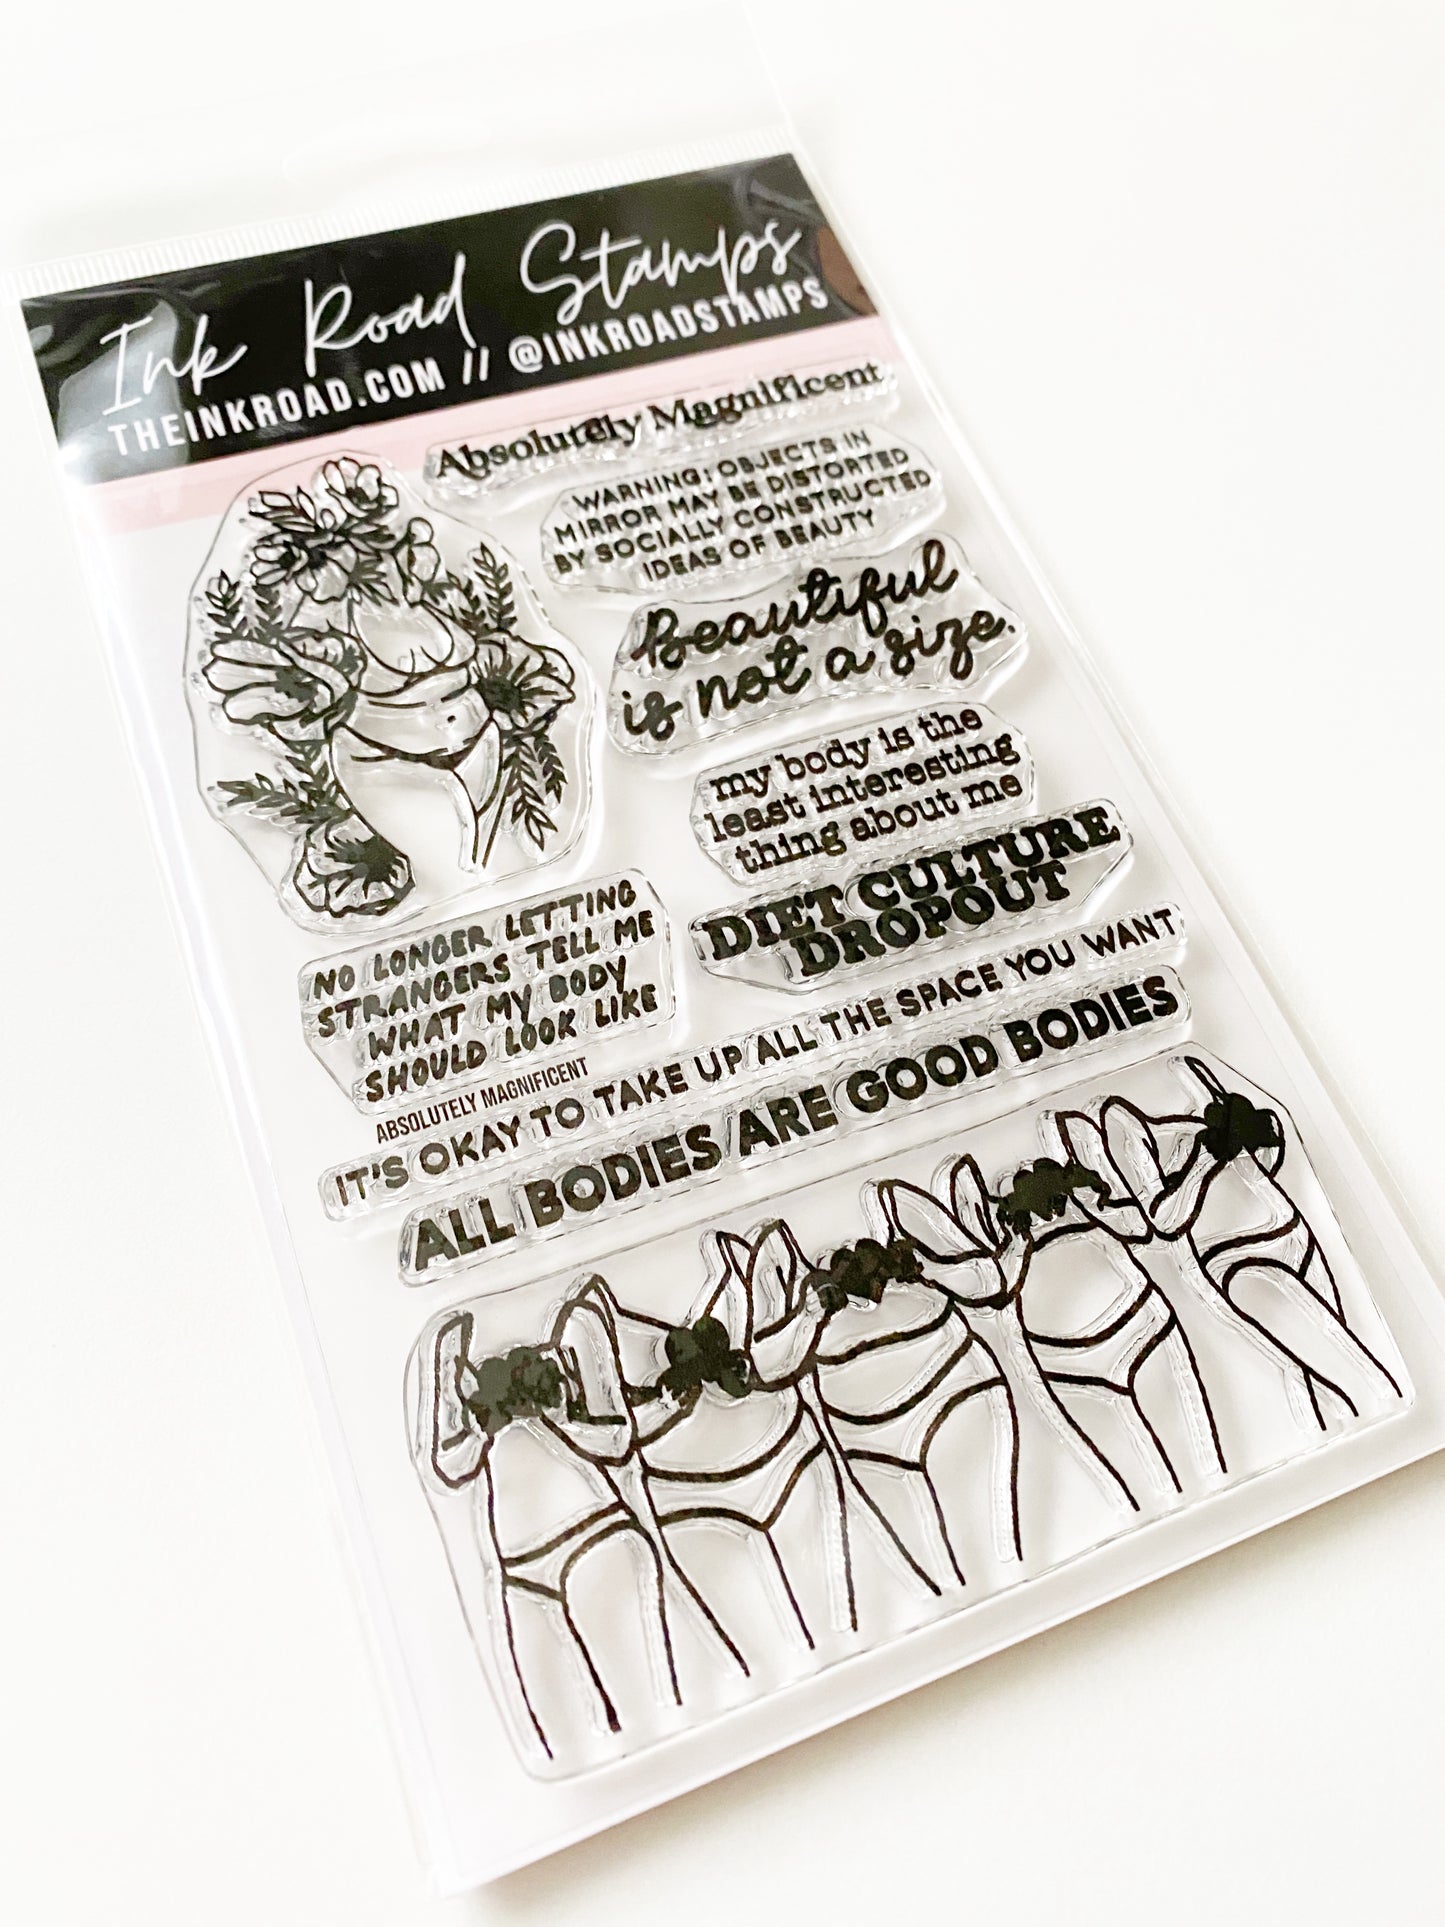 Ink Road Stamps
THEINKROAD.COM // @INKROADSTAMPS
Absolutely Magnificent
WARNING: OBJECTS IN
MIRROR MAY BE DISTORTED
BY SOCIALLY CONSTRUCTED
IDEAS OF BEAUTY
Beautiful
is not a size.
my body is the
least interesting
thing about me
DIET CULTURE
DROPOUT
NO LONGER LETTING
STRANGERS TELL ME
WHAT MY BODY
SHOULD LOOK LIKE
ABSOLUTELY MAGNIFICENT
IT'S OKAY TO TAKE UP ALL THE SPACE YOU WANT
ALL BODIES ARE GOOD BODIES